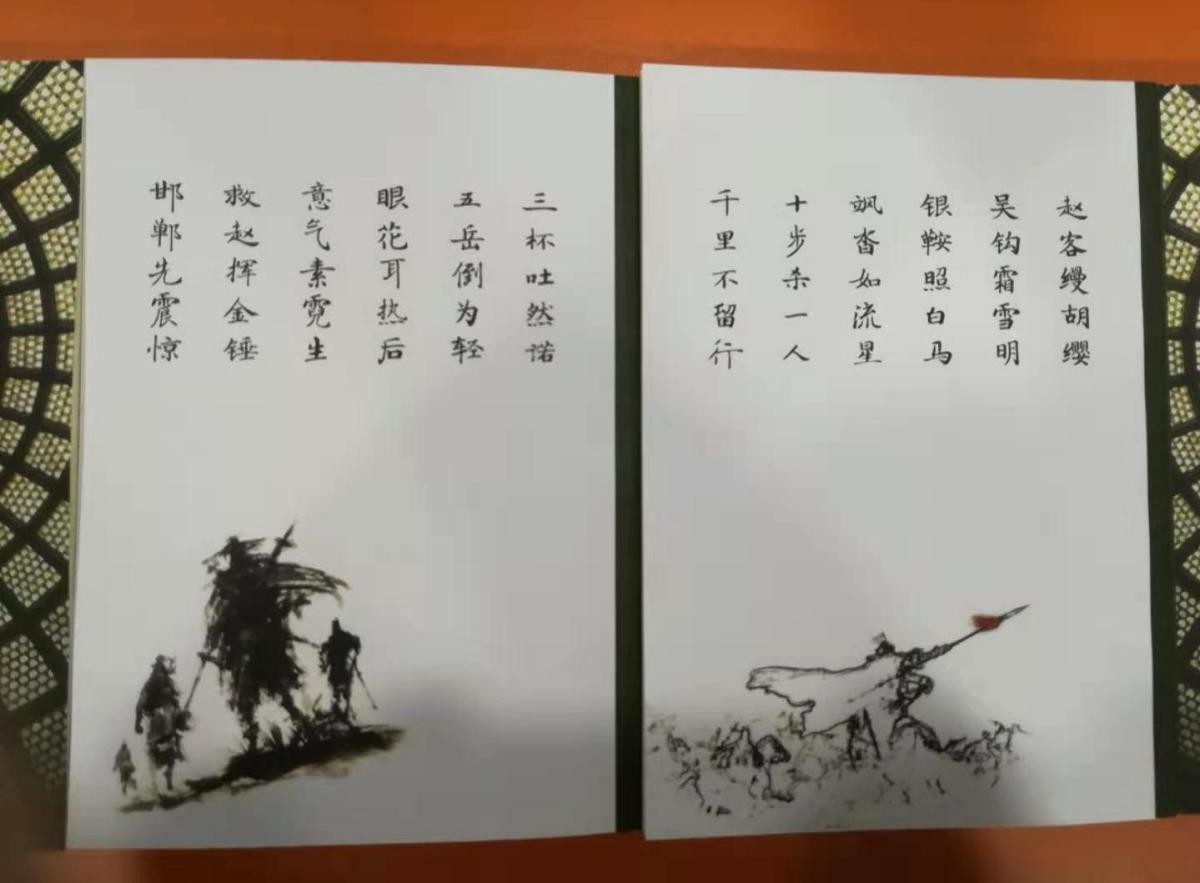 赵客缦胡缨
吴钩霜雪明
银鞍照白马
飒沓如流星
十步杀一人
千里不留行
三杯吐然诺
五岳倒为轻
眼花耳热后
意气素霓生
救赵挥金锤
邯郸先震惊